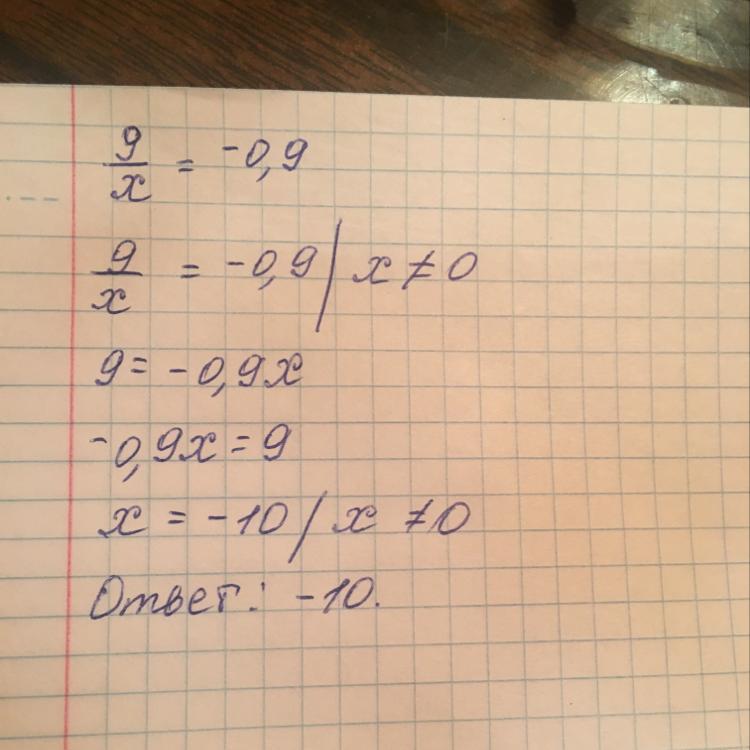 9/x = -0,9
9/x = -0,9 | x ≠ 0
9 = -0,9x
-0,9x = 9
x = -10 / x ≠ 0
Ответ: -10.